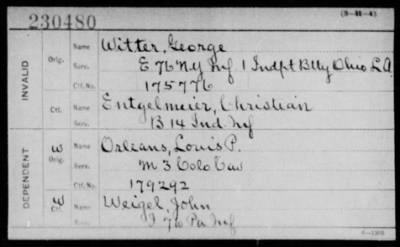 (3-111-4)
230480
INVALID
Orig. Name Witter, George
Serv. E 76 N.Y. Inf 1 Indpt Btty Ohio L.A.
Ctf. No. 175776
Ctf. Name Entgelmeier, Christian
Serv. B 14 Ind Inf
DEPENDENT
W Orig. Name Orleans, Louis P.
Serv. M 3 Colo Cav
Ctf. No. 179292
W Ctf. Name Weigel, John
Serv. I 76 Pa Inf